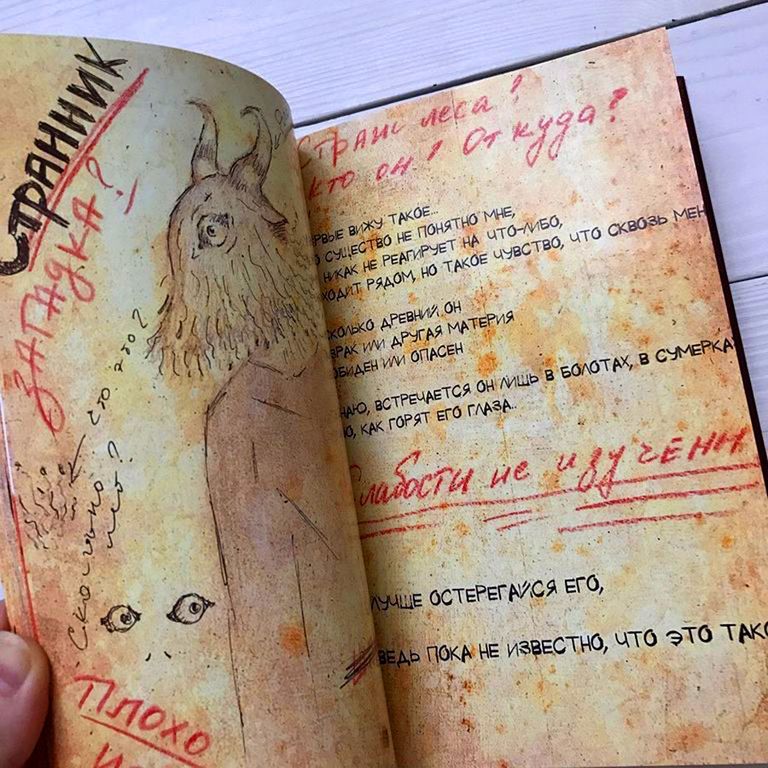 СТРАННИК
ЗАГАДКА?!
Сто это?
Сколько
лет?
Плохо
Страж леса?
Кто он? Откуда?
ВПЕРВЫЕ ВИЖУ ТАКОЕ...
СУЩЕСТВО НЕ ПОНЯТНО МНЕ,
НИКАК НЕ РЕАГИРУЕТ НА ЧТО-ЛИБО,
ХОДИТ РЯДОМ, НО ТАКОЕ ЧУВСТВО, ЧТО СКВОЗЬ МЕН
СКОЛЬКО ДРЕВНИЙ ОН
ЗРАК ИЛИ ДРУГАЯ МАТЕРИЯ
ОБИДЕН ИЛИ ОПАСЕН
НАЮ, ВСТРЕЧАЕТСЯ ОН ЛИШЬ В БОЛОТАХ, В СУМЕРКА
НО, КАК ГОРЯТ ЕГО ГЛАЗА..
Слабости не изучены
ЛУЧШЕ ОСТЕРЕГАЙСЯ ЕГО,
ВЕДЬ ПОКА НЕ ИЗВЕСТНО, ЧТО ЭТО ТАКО